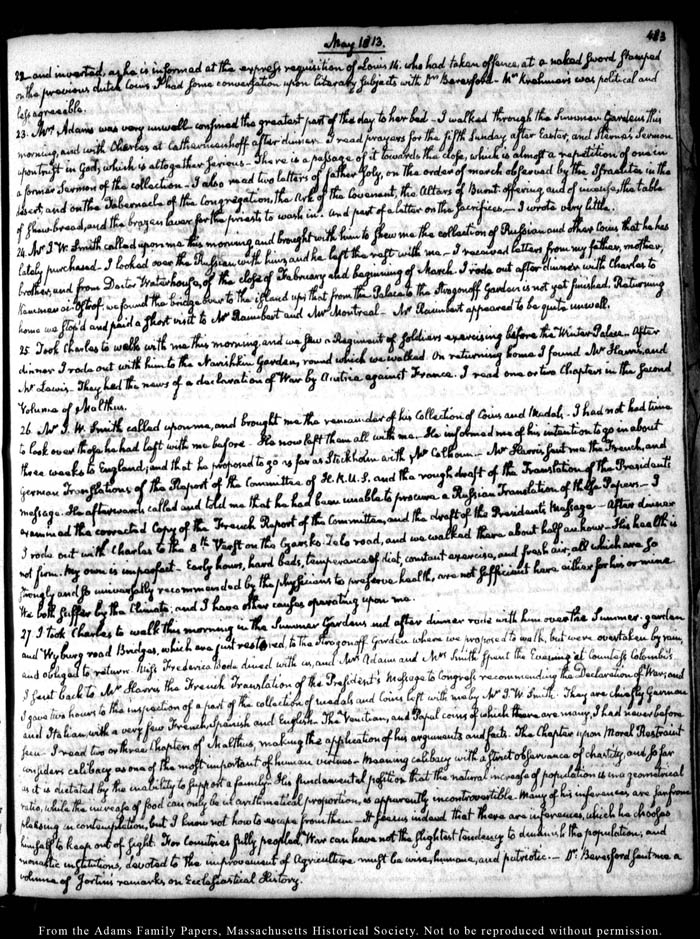 May 1813.
483
22 and inverted, as he is informed at the express requisition of Louis 14. who had taken offence, at a naked Sword Stamped
on the previous dutch Coins. I had some conversation upon literary Subjects with Dr. Beresford. Mr. Krehmer's was political and
less agreeable.
23. Mrs. Adams was very unwell confined the greatest part of the day to her bed. I walked through the Summer Gardens this
morning, and with Charles at Catherinenhoff after dinner. I read prayers for the fifth Sunday after Easter, and Sterne's Sermon
upon trust in God, which is altogether serious. There is a passage of it towards the close, which is almost a repetition of one in
a former Sermon of the collection. I also read two letters of father Joly, on the order of march observed by the Israelites in the
desert, and on the Tabernacle of the Congregation, the Ark of the Covenant, the Altars of Burnt-offering, and of incense, the table
of Shew-bread, and the brazen laver for the priests to wash in. And part of a letter on the Sacrifices. I wrote very little.
24. Mr. J. W. Smith called upon me this morning and brought with him to shew me the collection of Russian and other Coins that he has
lately purchased. I looked over the Russian with him, and he left the rest with me. I received letters from my father, mother,
brother, and from Doctor Waterhouse, of the close of February and beginning of March. I rode out after dinner with Charles to
Kammenoi-Ostrof, we found the bridge over to the island up; that from the Palace to the Strogonoff Garden is not yet finished. Returning
home we stop'd and paid a short visit to Mr. Raimbert and Mr. Montreal. Mr. Raimbert appeared to be quite unwell.
25 Took Charles to walk with me this morning, and we saw a Regiment of soldiers exercising before the Winter Palace. After
dinner I rode out with him to the Narishkin Garden, round which we walked. On returning home I found Mr. Harris, and
Mr. Lewis. They had the news of a declaration of War by Austria against France. I read one or two Chapters in the second
Volume of Malthus.
26 Mr. J. W. Smith called upon me, and brought me the remainder of his Collection of Coins and Medals. I had not had time
to look over those he had left with me before. He now left them all with me. He informed me of his intention to go in about
three weeks to England; and that he proposed to go as far as Stockholm with Mr. Colhoun. Mr. Harris sent me the French, and
German Translations of the Report of the Committee of H.R.U.S. and the rough draft of the Translation of the Presidents
message. He afterwards called and told me that he had been unable to procure a Russian Translation of these Papers. I
examined the corrected Copy of the French Report of the Committee, and the draft of the Presidents Message. After dinner
I rode out with Charles to the 8th Verst on the Czarsko-Zelo road, and we walked there about half an hour. His health is
not firm. My own is imperfect. Early hours, hard beds, temperance of diet, constant exercise, and fresh air, all which are so
strongly and so universally recommended by the physicians to preserve health, are not sufficient here either for his or mine.
We both suffer by the Climate; and I have other causes operating upon me.
27 I took Charles to walk this morning in the Summer Gardens and after dinner rode with him over the Summer-garden
and Wyburg road Bridges, which are just restored, to the Strogonoff Garden where we proposed to walk, but were overtaken by rain,
and obliged to return. Miss Frederica Bode dined with us, and Mrs. Adams and Mrs. Smith spent the Evening at Countess Colombi's.
I sent back to Mr. Harris the French Translation of the President's Message to Congress recommending the Declaration of War; and
I gave two hours to the inspection of a part of the collection of medals and Coins left with me by Mr. J. W. Smith. They are chiefly German
and Italian, with a very few French, Spanish and English. The Venetian, and Papal coins of which there are many, I had never before
seen. I read two or three Chapters of Malthus, making the application of his arguments and facts. The Chapter upon Moral Restraint
considers celibacy as one of the most important of human virtues. Meaning celibacy with a strict observance of chastity, and so far
as it is dictated by the inability to support a family. His fundamental position that the natural increase of population is in a geometrical
ratio, while the increase of food can only be in arithmetical proportion, is apparently incontrovertible. Many of his inferences are far from
pleasing in contemplation, but I know not how to escape from them. It seems indeed that there are inferences, which he chooses
himself to keep out of sight. For Countries fully peopled, War can have not the slightest tendency to diminish the population, and
monastic institutions, devoted to the improvement of Agriculture must be wise, humane, and patriotic. Dr. Beresford sent me a
volume of Jortin's remarks on Ecclesiastical History.
From the Adams Family Papers, Massachusetts Historical Society. Not to be reproduced without permission.